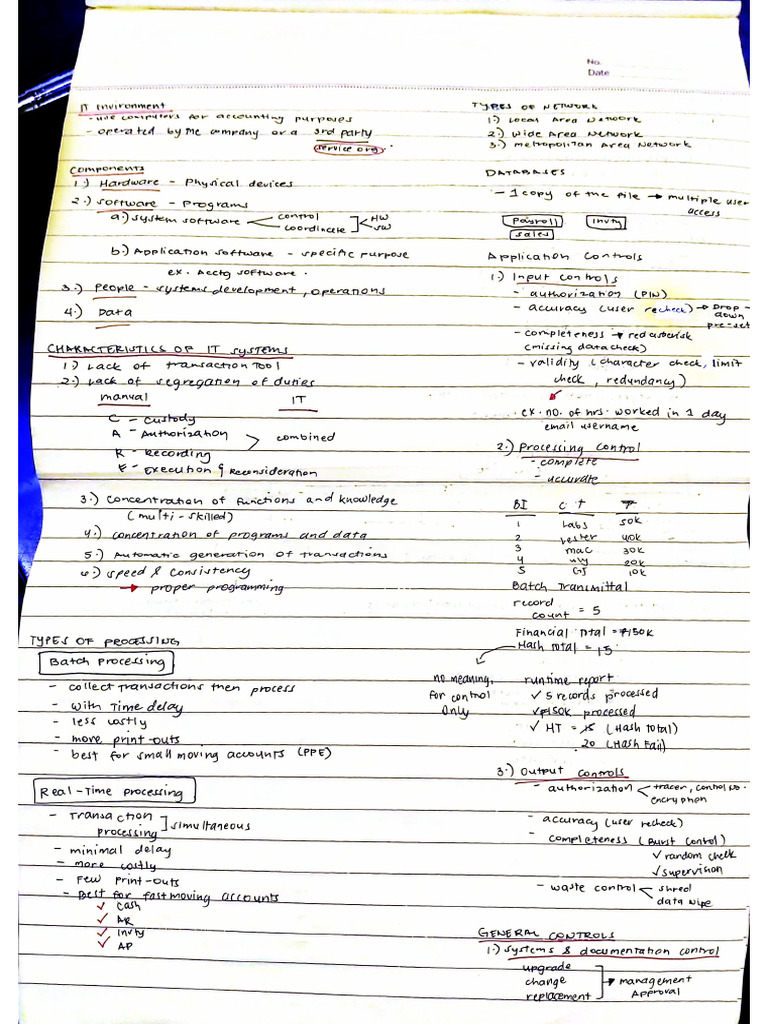 No.
Date
IT Environment
- use computers for accounting purposes
- operated by the company or a 3rd party
service org.
Components
1.) Hardware - Physical devices
2.) Software - Programs
a.) System software < control ] < HW
coordinate SW
b.) Application software - specific purpose
ex. Acctg software.
3.) People - systems development, operations
4.) Data
CHARACTERISTICS OF IT Systems
1.) Lack of transaction Tool
2.) Lack of segregation of duties
manual IT
C - custody
A - Authorization > combined
R - Recording
E - Execution & Reconsideration
3.) Concentration of functions and knowledge
(multi-skilled)
4.) concentration of programs and data
5.) Automatic generation of transactions
6.) speed & consistency
→ proper programming
TYPES OF PROCESSING
Batch processing
- collect transactions then process
- with Time delay
- less costly
- more print-outs
- best for small moving accounts (PPE)
Real-Time processing
- Transaction
processing ] simultaneous
- minimal delay
- more costly
- Few print-outs
- Best for fast moving accounts
✓ Cash
✓ AR
✓ Invty
✓ AP
TYPES OF NETWORK
1.) Local Area Network
2.) Wide Area Network
3.) metropolitan Area Network
DATABASES
- 1 copy of the file → multiple user
access
Payroll Invty
sales
Application Controls
1.) Input controls
- authorization (PIN)
- accuracy (user recheck) → Drop-
down
pre-set
- completeness → red asterisk
(missing data check)
- validity (character check, limit
check, redundancy)
ex. no. of hrs. worked in 1 day
email username
2.) Processing control
- complete
- accurate
BI C T ₱
1 Labs 50k
2 Lester 40k
3 mac 30k
4 20k
5 GJ 10k
Batch Transmittal
record
count = 5
Financial Total = ₱150k
Hash Total = 15
no meaning,
for control
only
runtime report
✓ 5 records processed
✓ ₱150k processed
✓ HT = 15 (Hash Total)
20 (Hash Fail)
3.) Output controls
- authorization < tracer, control no.
encryption
- accuracy (user recheck)
- completeness (Burst control)
✓ random check
✓ supervision
- waste control < shred
data wipe
GENERAL CONTROLS
1.) systems & documentation control
upgrade
change ] → management
replacement Approval